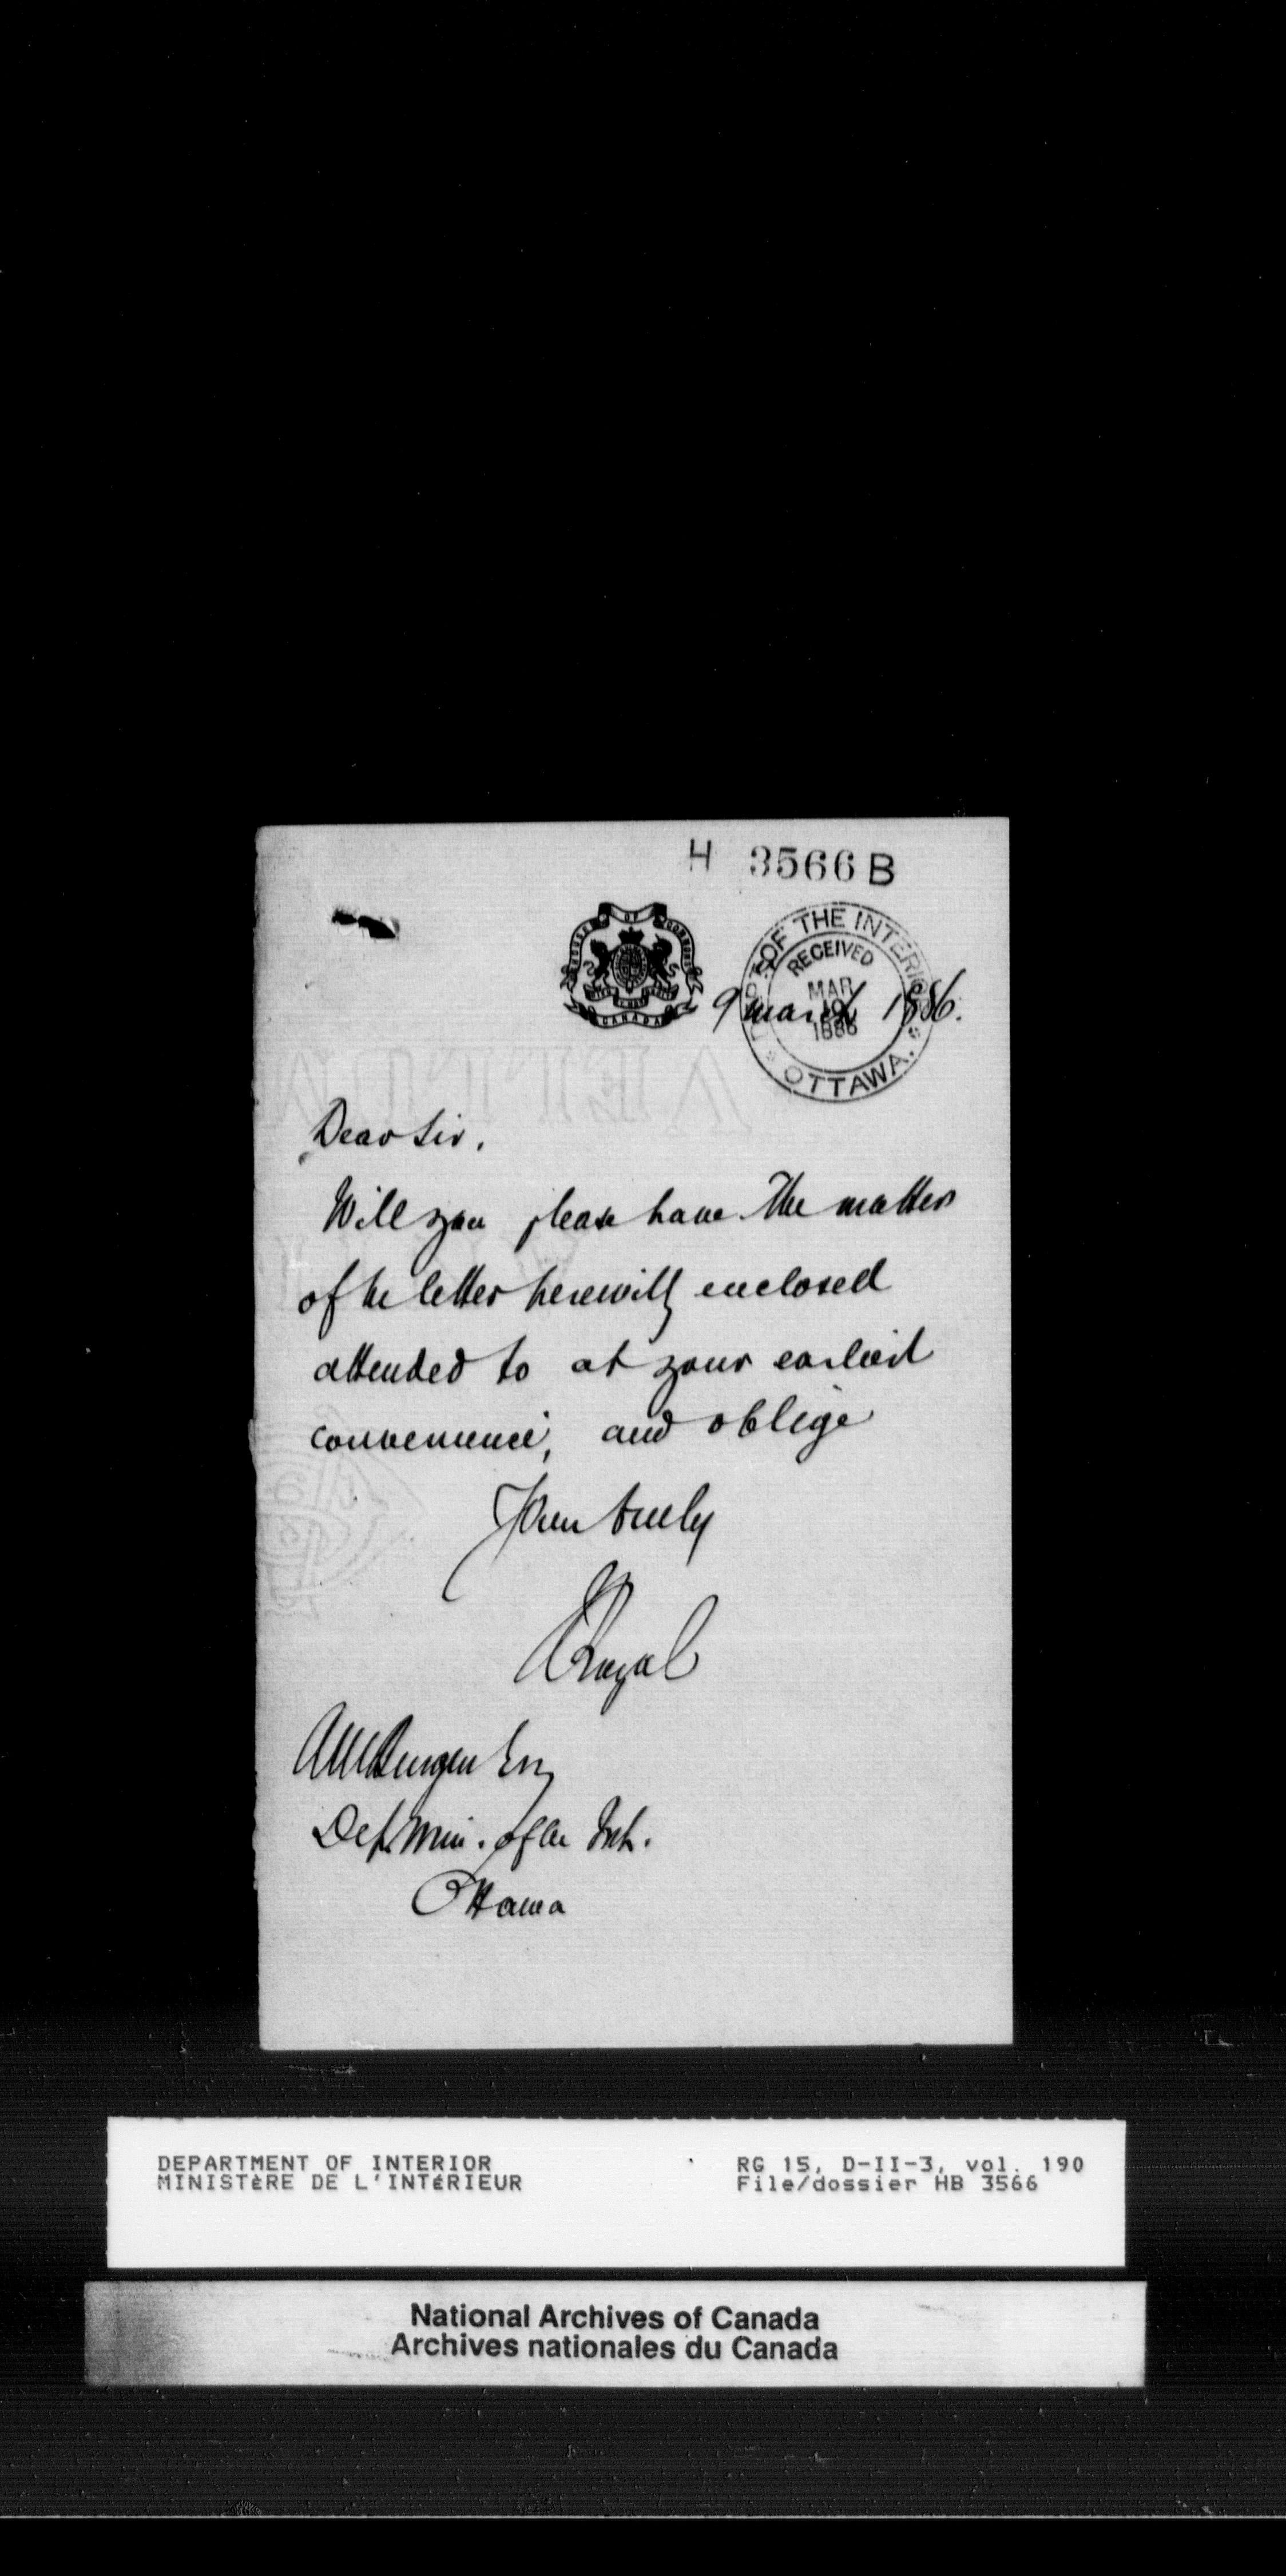 H 3566 B
HOUSE OF COMMONS
CANADA
DEPT. OF THE INTERIOR
RECEIVED
MAR
10
1886
OTTAWA.
9 march 1886.
VELLUM
Dear Sir.
Will you please have the matter
of the letter herewith enclosed
attended to at your earliest
convenience, and oblige
Yours truly
Royal
AM Burgess Esq
Dep. Min. of the Int.
Ottawa
DEPARTMENT OF INTERIOR
MINISTÈRE DE L'INTÉRIEUR
RG 15, D-II-3, vol. 190
File/dossier HB 3566
National Archives of Canada
Archives nationales du Canada